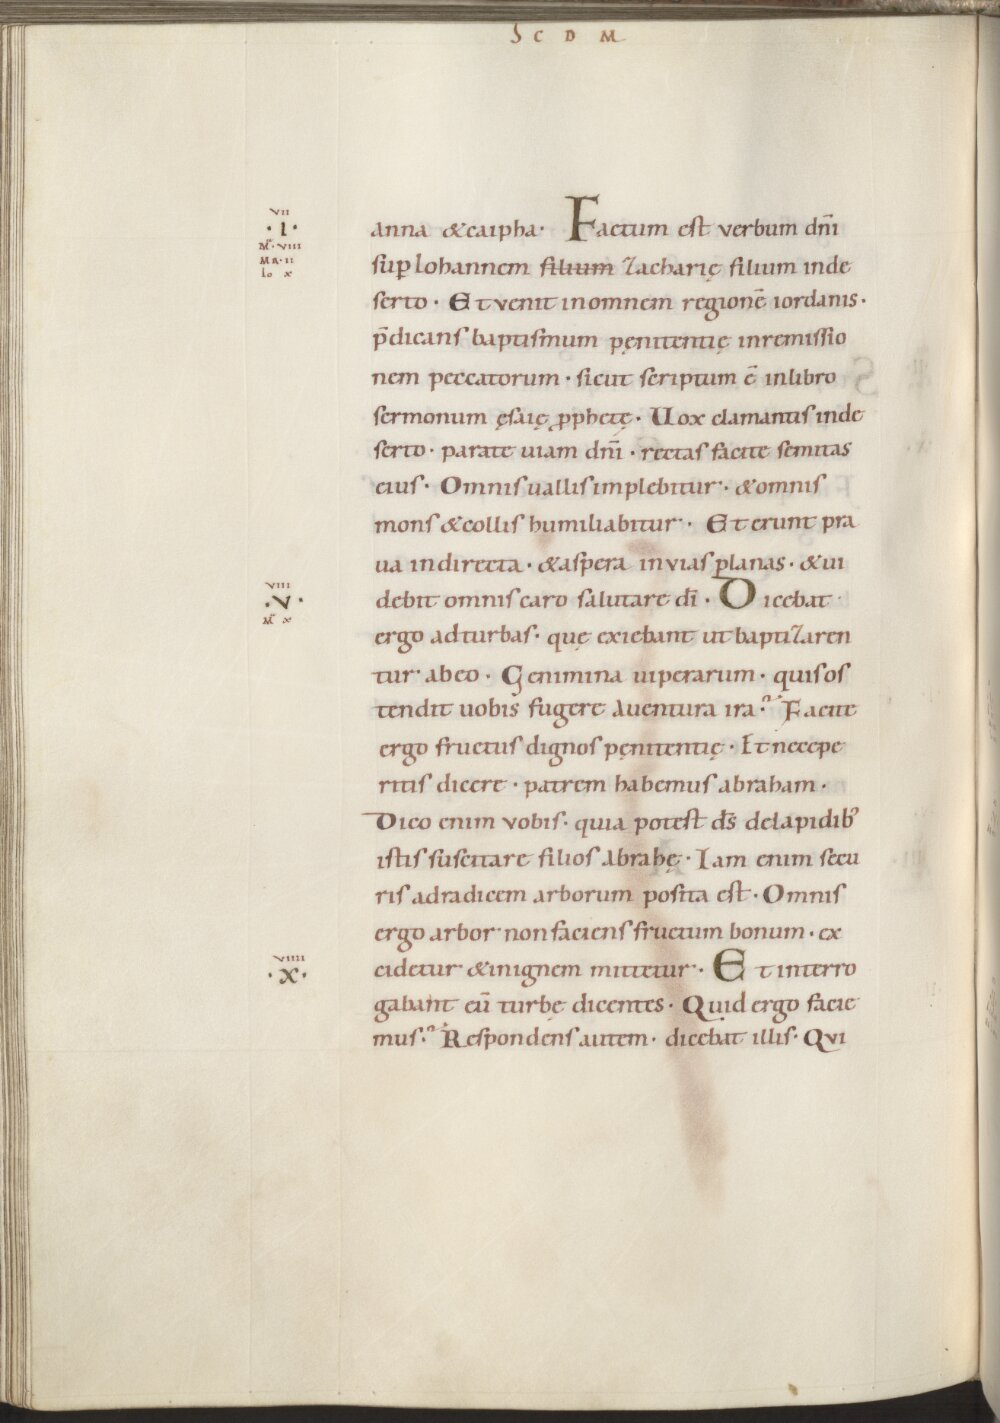 S C D M
VII
· I ·
M̅ · VIII
MR · II
Io X
anna &caipha · Factum est verbum dn̄i
sup Iohannem filium Zacharię filium inde
serto · Et venit inomnem regionē iordanis ·
p̄dicans baptismum pęnitentię inremissio
nem peccatorum · sicut scriptum ē inlibro
sermonum ęsaię ꝓphetę · Uox clamantis inde
serto · parate uiam dn̄i · rectas facite semitas
eius · Omnis uallis implebitur · &omnis
mons &collis humiliabitur · Et erunt pra
ua indirecta · &aspera invias planas · &ui
VIII
· V ·
M̅ X
debit omnis caro salutare dī · Dicebat
ergo adturbas · quę exiebant utbaptizaren
tur abeo · Genimina uiperarum · quisos
tendit uobis fugere aventura ira · Facite
ergo fructus dignos pęnitentię · Et necepe
ritis dicere · patrem habemus abraham ·
Dico enim vobis · quia potest d̄s delapidib᾽
istis suscitare filios abrahę · Iam enim secu
ris adradicem arborum posita est · Omnis
ergo arbor nonfaciens fructum bonum · ex
VIIII
· X ·
cidetur &inignem mittetur · Et interro
gabant eū turbę dicentes · Quid ergo facie
mus · Respondens autem · dicebat illis · Qui